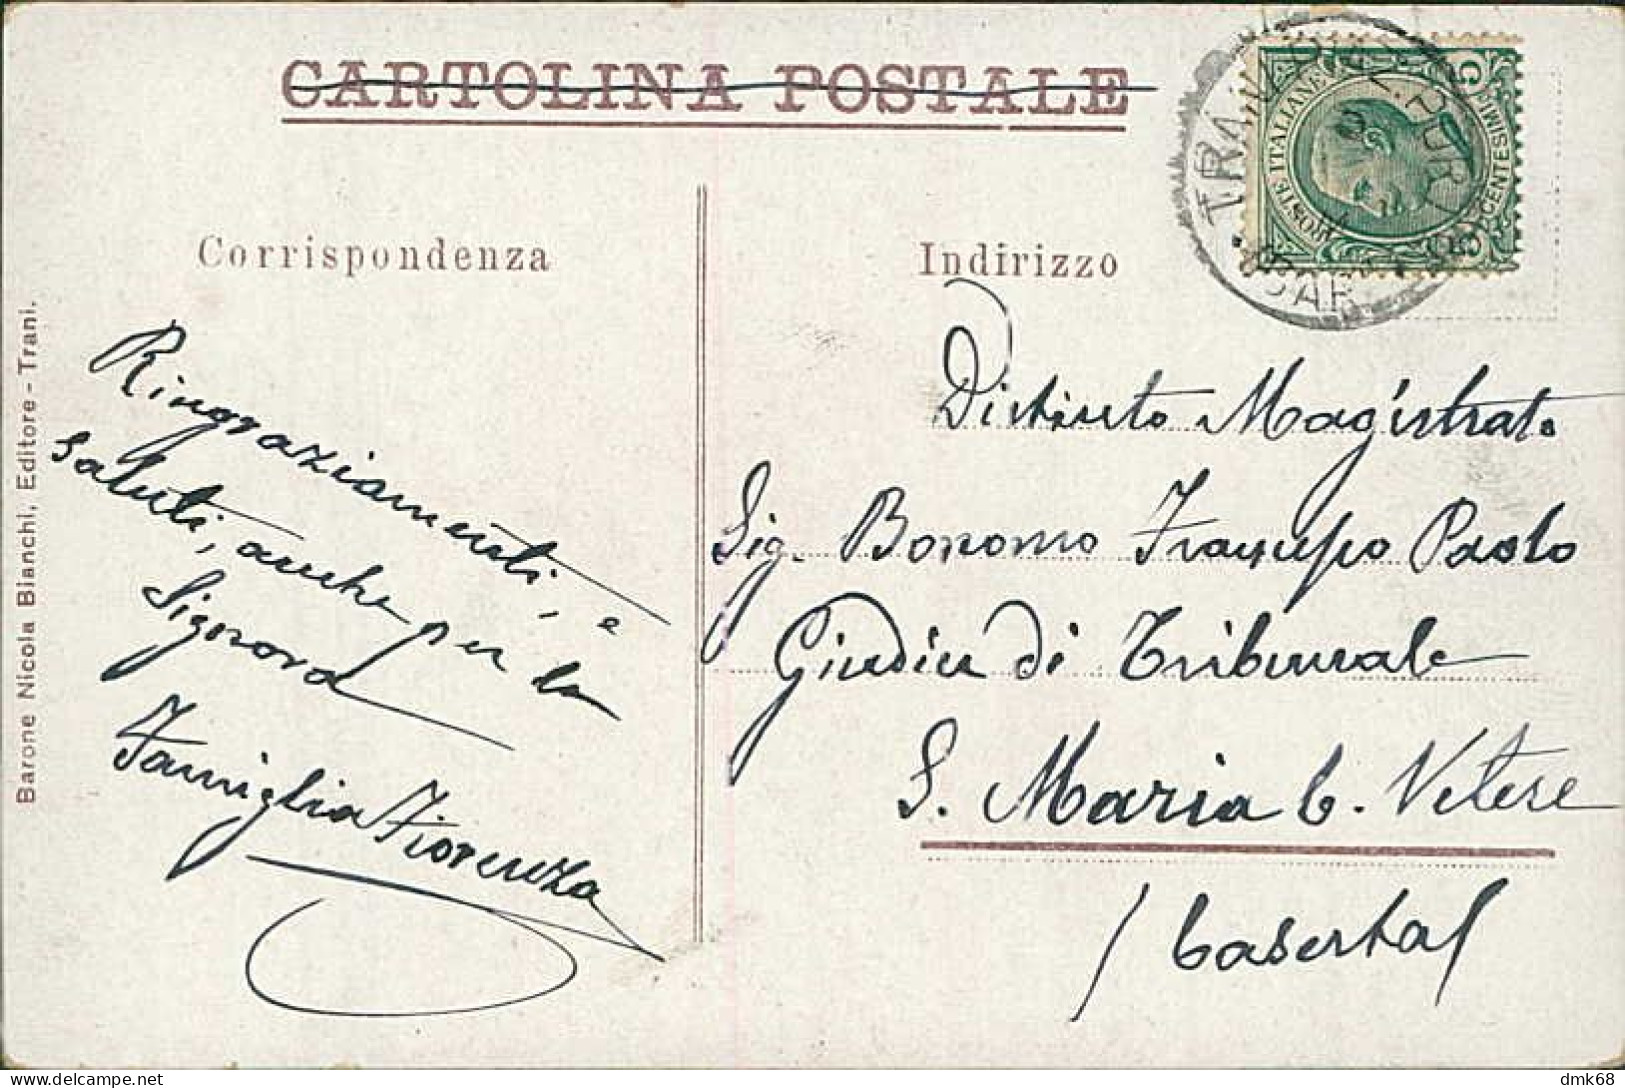 CARTOLINA POSTALE
Corrispondenza
Ringraziamenti, e
saluti, anche per la
Signora
Famiglia Fiorenza
Barone Nicola Bianchi, Editore - Trani.
Indirizzo
Distinto Magistrato
Sig. Bonomo Francesco Paolo
Giudice di Tribunale
S. Maria C. Vetere
(Caserta)
POSTE ITALIANE
CENTESIMI
TRANI
BARI
dmk68